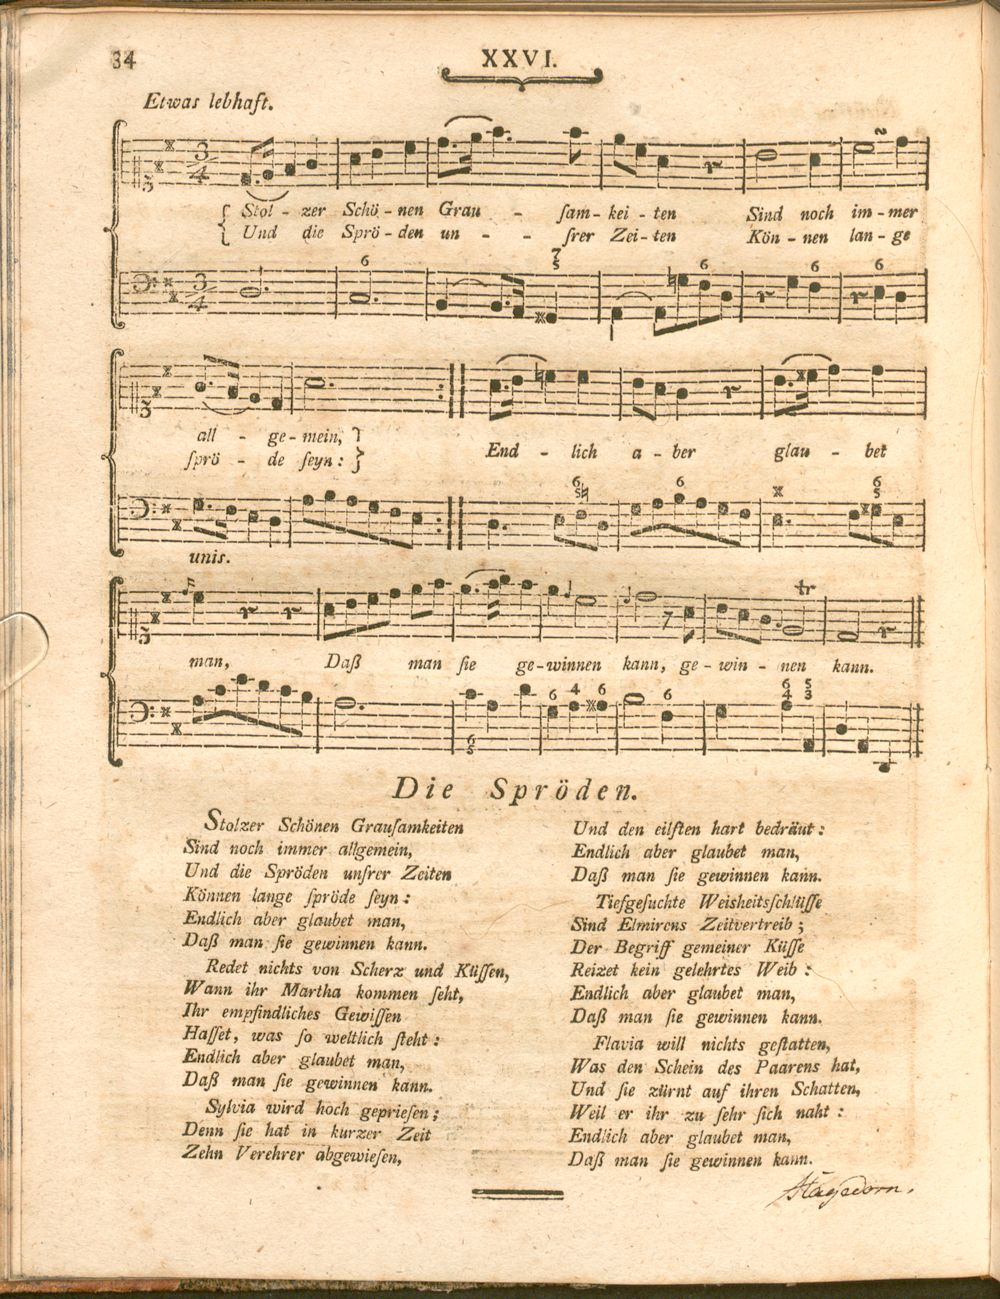 34
XXVI.
Etwas lebhaft.
Stol - zer Schö - nen Grau - ſam - kei - ten Sind noch im - mer
Und die Sprö - den un - - ſrer Zei - ten Kön - nen lan - ge
6 7 5 6 6 6
all - ge - mein,
ſprö - de ſeyn:
End - lich a - ber glau - bet
6 5 6 6 5
unis.
tr
man, Daß man ſie ge - winnen kann, ge - win - nen kann.
6 5 6 4 6 6 6 4 5 3
Die Spröden.
Stolzer Schönen Grauſamkeiten
Sind noch immer allgemein,
Und die Spröden unſrer Zeiten
Können lange ſpröde ſeyn:
Endlich aber glaubet man,
Daß man ſie gewinnen kann.
Redet nichts von Scherz und Küſſen,
Wann ihr Martha kommen ſeht,
Ihr empfindliches Gewiſſen
Haſſet, was ſo weltlich ſteht:
Endlich aber glaubet man,
Daß man ſie gewinnen kann.
Sylvia wird hoch geprieſen;
Denn ſie hat in kurzer Zeit
Zehn Verehrer abgewieſen,
Und den eilften hart bedräut:
Endlich aber glaubet man,
Daß man ſie gewinnen kann.
Tiefgeſuchte Weisheitsſchlüſſe
Sind Elmirens Zeitvertreib;
Der Begriff gemeiner Küſſe
Reizet kein gelehrtes Weib:
Endlich aber glaubet man,
Daß man ſie gewinnen kann.
Flavia will nichts geſtatten,
Was den Schein des Paarens hat,
Und ſie zürnt auf ihren Schatten,
Weil er ihr zu ſehr ſich naht:
Endlich aber glaubet man,
Daß man ſie gewinnen kann.
Hagedorn.